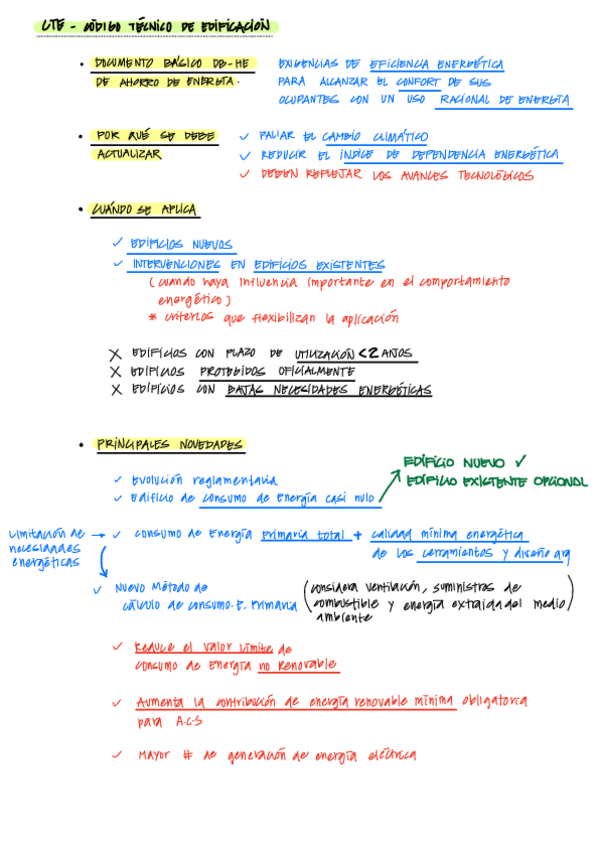 CTE - CÓDIGO TÉCNICO DE EDIFICACIÓN
• DOCUMENTO BÁSICO DB-HE
DE AHORRO DE ENERGÍA.
EXIGENCIAS DE EFICIENCIA ENERGÉTICA
PARA ALCANZAR EL CONFORT DE SUS
OCUPANTES CON UN USO RACIONAL DE ENERGÍA
• POR QUÉ SE DEBE
ACTUALIZAR
✓ PALIAR EL CAMBIO CLIMÁTICO
✓ REDUCIR EL ÍNDICE DE DEPENDENCIA ENERGÉTICA
✓ DEBEN REFLEJAR LOS AVANCES TECNOLÓGICOS
• CUÁNDO SE APLICA
✓ EDIFICIOS NUEVOS
✓ INTERVENCIONES EN EDIFICIOS EXISTENTES
(cuando haya influencia importante en el comportamiento
energético)
* criterios que flexibilizan la aplicación
X EDIFICIOS CON PLAZO DE UTILIZACIÓN < 2 AÑOS
X EDIFICIOS PROTEGIDOS OFICIALMENTE
X EDIFICIOS CON BAJAS NECESIDADES ENERGÉTICAS
• PRINCIPALES NOVEDADES
EDIFICIO NUEVO ✓
EDIFICIO EXISTENTE OPCIONAL
✓ Evolución reglamentaria
✓ Edificio de consumo de Energía casi nulo
Limitación de
necesidades
energéticas
→ ✓ Consumo de Energía primaria total + calidad mínima energética
de los cerramientos y diseño arq
✓ Nuevo Método de
cálculo de consumo E. Primaria
(considera ventilación, suministros de
combustible y energía extraída del medio
ambiente)
✓ Reduce el valor límite de
consumo de Energía no Renovable
✓ Aumenta la contribución de energía renovable mínima obligatoria
para A.C.S
✓ Mayor # de generación de energía eléctrica